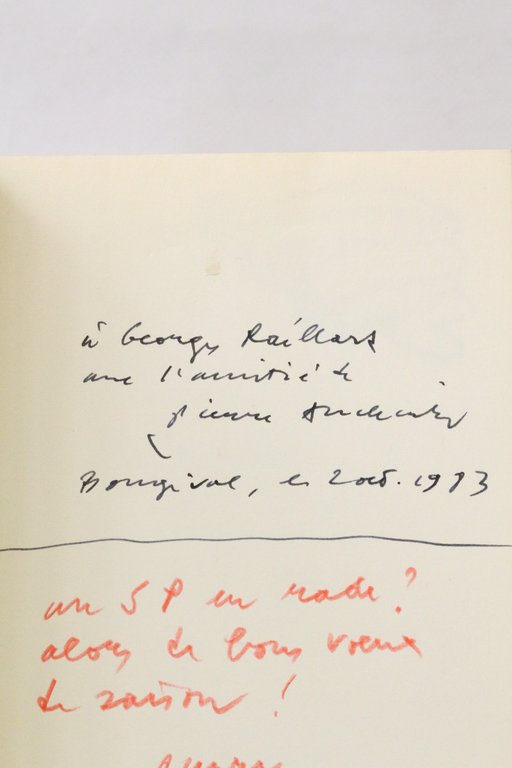 à Georges Raillard
avec l'amitié de
pierre
Bougival, le 2 oct. 1983
un SP en rade?
alors de bons voeux
de saison !